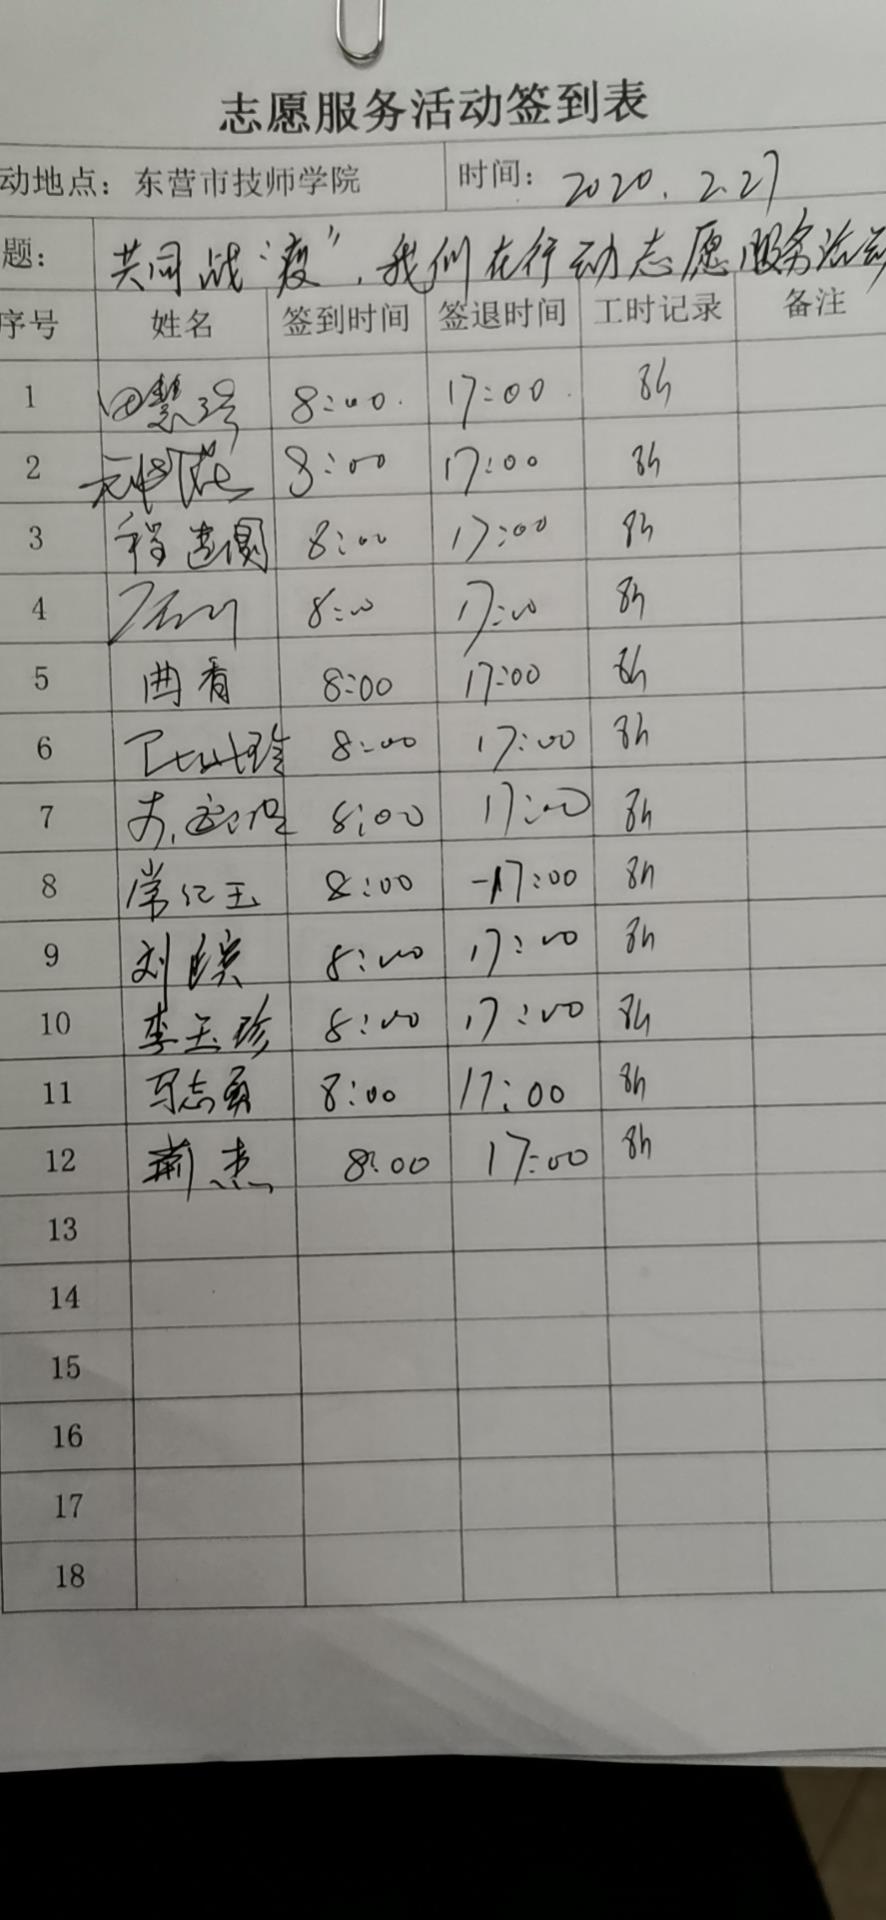 志愿服务活动签到表
动地点：东营市技师学院 时间：2020.2.27
题：共同战“疫”，我们在行动志愿服务活动
序号 姓名 签到时间 签退时间 工时记录 备注
1 田慧 8:00 17:00 8h
2 8:00 17:00 8h
3 程 8:00 17:00 8h
4 8:00 17:00 8h
5 曲看 8:00 17:00 8h
6 8:00 17:00 8h
7 8:00 17:00 8h
8 常红玉 8:00 17:00 8h
9 刘 8:00 17:00 8h
10 李玉珍 8:00 17:00 8h
11 马志勇 8:00 17:00 8h
12 荆杰 8:00 17:00 8h
13
14
15
16
17
18